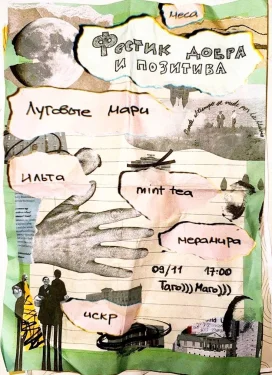 меса
Фестик добра
и позитива
Луговые мари
Ильта
mint tea
мерамира
09/11 17:00
Таго))) Маго)))
искр